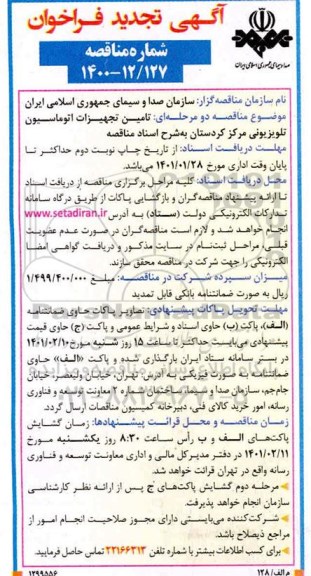 آگهی تجدید فراخوان
شماره مناقصه
۱۴۰۰-۱۲/۱۲۷
صدا و سیمای جمهوری اسلامی ایران
نام سازمان مناقصه‌گزار: سازمان صدا و سیمای جمهوری اسلامی ایران
موضوع مناقصه دو مرحله‌ای: تامین تجهیزات اتوماسیون
تلویزیونی مرکز کردستان به‌شرح اسناد مناقصه
مهلت دریافت اسناد: از تاریخ چاپ نوبت دوم حداکثر تا
پایان وقت اداری مورخ ۱۴۰۱/۰۱/۲۸ می‌باشد.
محل دریافت اسناد: کلیه مراحل برگزاری مناقصه از دریافت اسناد
تا ارائه پیشنهاد مناقصه‌گران و بازگشایی پاکات از طریق درگاه سامانه
تدارکات الکترونیکی دولت (ستاد) به آدرس www.setadiran.ir
انجام خواهد شد و لازم است مناقصه‌گران در صورت عدم عضویت
قبلی، مراحل ثبت‌نام در سایت مذکور و دریافت گواهی امضا
الکترونیکی را جهت شرکت در مناقصه محقق سازند.
میزان سپرده شرکت در مناقصه: مبلغ ۱/۴۹۹/۴۰۰/۰۰۰
ریال به صورت ضمانتنامه بانکی قابل تمدید
مهلت تحویل پاکات پیشنهادی: تصاویر پاکات حاوی ضمانتنامه
(الف)، پاکت (ب) حاوی اسناد و شرایط عمومی و پاکت (ج) حاوی قیمت
پیشنهادی می‌بایست حداکثر تا ساعت ۱۵ روز شنبه مورخ ۱۴۰۱/۰۲/۱۰
در بستر سامانه ستاد ایران بارگذاری شده و پاکت «الف» حاوی
ضمانتنامه به صورت فیزیکی به آدرس: تهران، خیابان ولیعصر، خیابان
جام‌جم، سازمان صدا و سیمای ساختمان شماره ۲ معاونت توسعه و فناوری
رسانه، امور خرید کالای فنی، دبیرخانه کمیسیون مناقصات ارسال گردد.
زمان مناقصه و محل قرائت پیشنهادها: زمان گشایش
پاکت‌های الف و ب رأس ساعت ۸:۳۰ روز یکشنبه مورخ
۱۴۰۱/۰۲/۱۱ در دفتر مدیرکل مالی و اداری معاونت توسعه و فناوری
رسانه واقع در تهران قرائت خواهد شد.
مرحله دوم گشایش پاکت‌های ج پس از ارائه نظر کارشناسی
سازمان انجام خواهد پذیرفت.
شرکت‌کننده می‌بایستی دارای مجوز صلاحیت انجام امور از
مراجع ذیصلاح باشد.
برای کسب اطلاعات بیشتر با شماره تلفن ۲۲۱۶۶۳۱۳ تماس حاصل فرمایید.
م الف/ ۱۲۸
۱۲۹۹۵۵۶